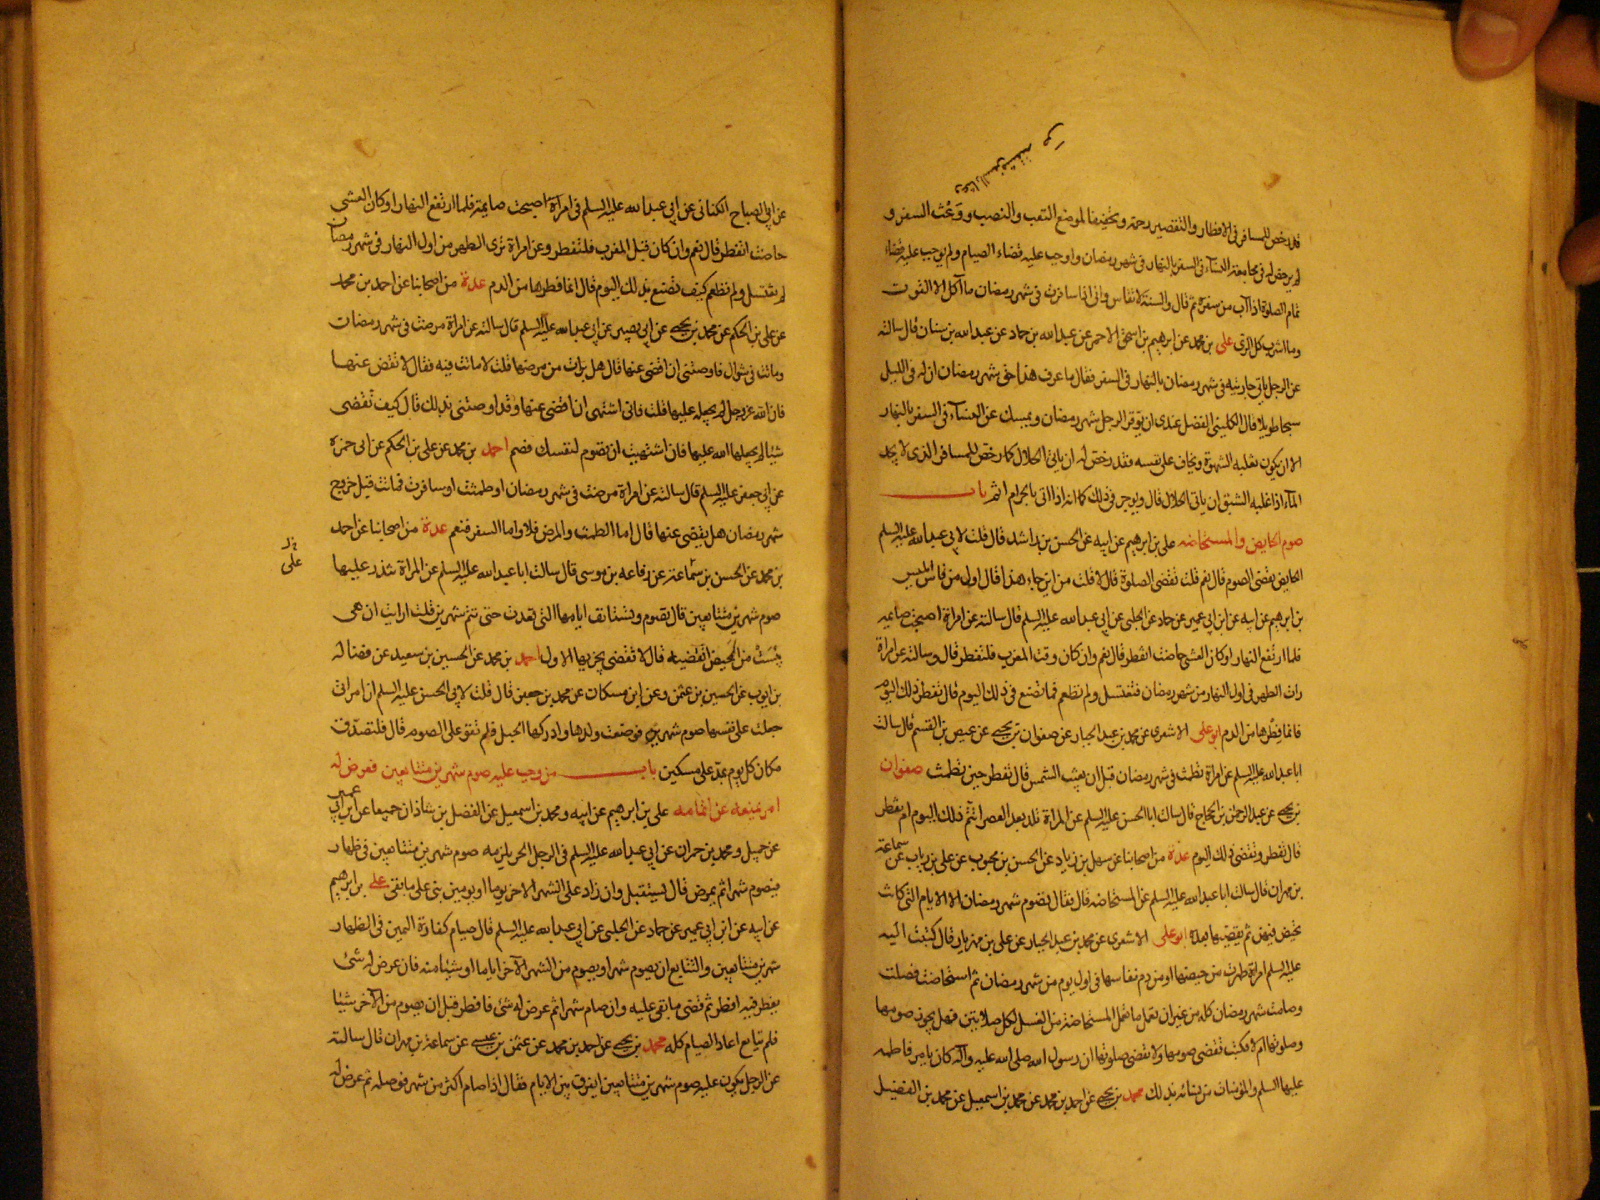 قد رخص للمسافر في الافطار والتقصير رحمة وتخفيفا لموضع التعب والنصب ووعث السفر و
لم يرخص له في مجامعة النسآء في السفر بالنهار في شهر رمضان واوجب عليه قضاء الصيام ولم يوجب عليه قضاء
تمام الصلوة اذا آب من سفره ثم قال والسنة لا تقاس واني اذا سافرت في شهر رمضان ما آكل الا القوت
وما اشرب كل الري علي بن محمد عن ابرهيم بن اسحق الاحمر عن عبدالله بن حماد عن عبدالله بن سنان قال سالته
عن الرجل ياتي جاريته في شهر رمضان بالنهار في السفر فقال ما عرف هذا حق شهر رمضان ان له في الليل
سبحا طويلا قال الكليني الفضل عندي ان يوقر الرجل شهر رمضان ويمسك عن النسآء في السفر بالنهار
الا ان يكون تغلبه الشهوة ويخاف على نفسه فقد رخص له ان ياتي الحلال كما رخص للمسافر الذي لا يجد
المآء اذا غلبه الشبق ان ياتي الحلال قال ويوجر في ذلك كما انه اذا اتى بالحرام اثم باب
صوم الحايض والمستحاضه علي بن ابرهيم عن ابيه عن الحسن بن راشد قال قلت لابي عبدالله عليه السلم
الحايض تقضي الصوم قال نعم قلت تقضي الصلوة قال لا قلت من اين جاء هذا قال اول من قاس ابليس
بن ابرهيم عن ابيه عن ابن ابي عمير عن حماد عن الحلبي عن ابي عبدالله عليه السلم قال سالته عن امراة اصبحت صايمة
فلما ارتفع النهار او كان العشي حاضت اتفطر قال نعم وان كان وقت المغرب فلتفطر قال وسالته عن امراة
رات الطهر في اول النهار من شهر رمضان فتغتسل ولم تطعم فما تصنع في ذلك اليوم قال تفطر ذلك اليوم
فانما فطرها من الدم ابو علي الاشعري عن محمد بن عبدالجبار عن صفوان بن يحيى عن عيص بن القسم قال سالت
ابا عبدالله عليه السلم عن امراة تطمث في شهر رمضان قبل ان يغيب الشمس قال تفطر حين تطمث صفوان
بن يحيى عن عبدالرحمن بن الحجاج قال سالت ابا الحسن عليه السلم عن المراة تلد بعد العصر اتتم ذلك اليوم ام تفطر
قال تفطر وتقضي ذلك اليوم عدة من اصحابنا عن سهل بن زياد عن الحسن بن محبوب عن علي بن رياب عن سماعة
بن مهران قال سالت ابا عبدالله عليه السلم عن المستحاضه قال فقال تصوم شهر رمضان الا الايام التي كانت
تحيض فيهن ثم يقضيها بعده ابو علي الاشعري عن محمد بن عبدالجبار عن علي بن مهزيار قال كتبت اليه
عليه السلم امراة طهرت من حيضها او من دم نفاسها في اول يوم من شهر رمضان ثم استحاضت فصلت
وصامت شهر رمضان كله من غير ان تعمل ما تعمل المستحاضة من الغسل لكل صلاتين فهل يجوز صومها
وصلوتها ام لا فكتب تقضي صومها ولا تقضي صلوتها ان رسول الله صلى الله عليه وآله كان يامر فاطمه
عليها السلم والمؤمنات من نسائه بذلك محمد بن يحيى عن احمد بن محمد عن محمد بن اسمعيل عن محمد بن الفضيل
عن ابي الصباح الكناني عن ابي عبدالله عليه السلم في امرأة اصبحت صايمة فلما ارتفع النهار او كان العشي
حاضت اتفطر قال نعم وان كان قبل المغرب فلتفطر وعن امراة ترى الطهر من اول النهار في شهر رمضان
لم يغتسل ولم تطعم كيف تصنع بذلك اليوم قال انما فطرها من الدم عدة من اصحابنا عن احمد بن محمد
عن علي بن الحكم عن محمد بن يحيى عن ابي بصير عن ابي عبدالله عليه السلم قال سالته عن امراة مرضت في شهر رمضان
وماتت في شوال فاوصتني ان اقضي عنها قال هل برأت من مرضها قلت لا ماتت فيه فقال لا تقض عنها
فان الله عز وجل لم يجعله عليها قلت فاني اشتهى ان اقضي عنها وقد اوصتني بذلك قال كيف تقضي
شيئا لم يجعلها الله عليها فان اشتهيت ان تصوم لنفسك فصم احمد بن محمد عن علي بن الحكم عن ابي حمزة
عن ابي جعفر عليه السلم قال سالته عن امراة مرضت في شهر رمضان او طمثت او سافرت فماتت قبل خروج
شهر رمضان هل يقضى عنها قال اما الطمث والمرض فلا واما السفر فنعم عدة من اصحابنا عن احمد
بن محمد عن الحسن بن سماعة عن رفاعه بن موسى قال سالت ابا عبدالله عليه السلم عن المراة تنذر عليها
صوم شهرين متتابعين قال تصوم وتستانف ايامها التي قعدت حتى تتم شهرين قلت ارايت ان هي
يئست من المحيض اتقضيه قال لا تقضي يجزيها الاول احمد بن محمد عن الحسين بن سعيد عن فضاله
بن ايوب عن الحسين بن عثمن وعن ابن مسكان عن محمد بن جعفر قال قلت لابي الحسن عليه السلم ان امراتي
جعلت على نفسها صوم شهرين فوضعت ولدها وادركها الحبل فلم تقو على الصوم قال فلتصدق
مكان كل يوم بمد على مسكين باب من وجب عليه صوم شهرين متتابعين فعرض له
امر يمنعه عن اتمامه علي بن ابرهيم عن ابيه ومحمد بن اسمعيل عن الفضل بن شاذان جميعا عن ابن ابي عمير
عن جميل ومحمد بن حمران عن ابي عبدالله عليه السلم في الرجل الحر يلزمه صوم شهرين متتابعين في ظهار
فيصوم شهرا ثم يمرض قال يستقبل وان زاد على الشهر الاخر يوما او يومين بنى على ما بقى علي بن ابرهيم
عن ابيه عن ابن ابي عمير عن حماد عن الحلبي عن ابي عبدالله عليه السلم قال صيام كفارة اليمين في الظهار
شهرين متتابعين والتتابع ان يصوم شهرا ويصوم من الشهر الآخر اياما او شيئا منه فان عرض له شئ
يفطر فيه افطر ثم قضى ما بقى عليه وان صام شهرا ثم عرض له شئ فافطر قبل ان يصوم من الآخر شيئا
فلم يتابع اعاد الصيام كله محمد بن يحيى عن احمد بن محمد عن عثمن بن عيسى عن سماعة بن مهران قال سالته
عن الرجل يكون عليه صوم شهرين متتابعين ايفرق بين الايام فقال اذا صام اكثر من شهر فوصله ثم عرض له